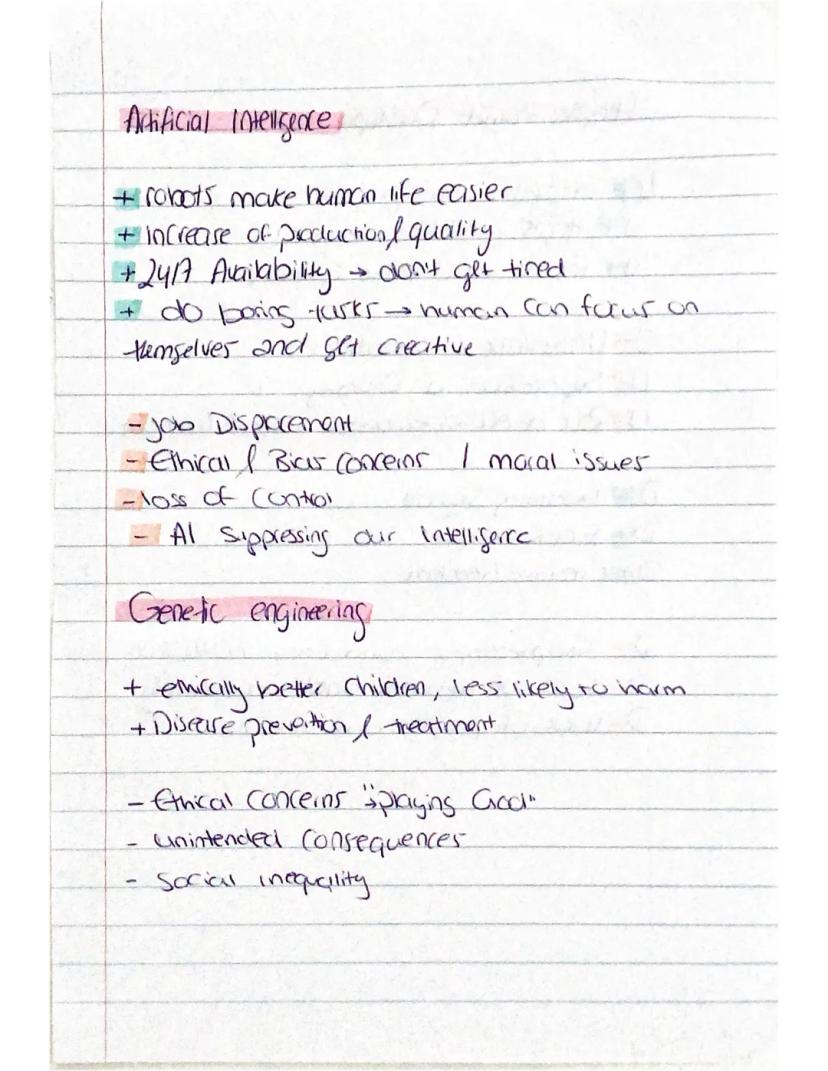 Artificial Intelligence
+ robots make human life easier
+ increase of production & quality
+ 24/7 Availability → don't get tired
+ do boring tasks → human can focus on
themselves and get creative
- job Displacement
- Ethical & Bias concerns / moral issues
- loss of control
- AI suppressing our intelligence
Genetic engineering
+ ethically better children, less likely to harm
+ Disease prevention & treatment
- Ethical concerns → "playing God"
- unintended consequences
- social inequality